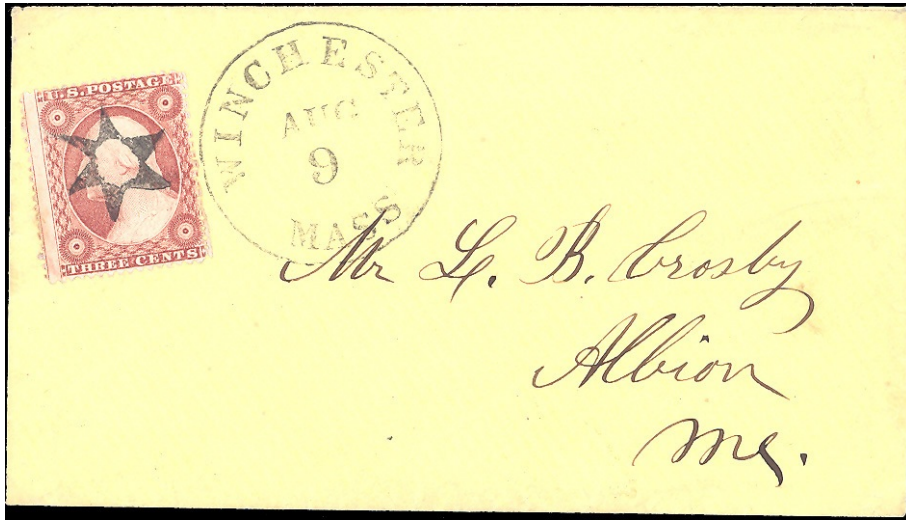 U.S. POSTAGE
THREE CENTS
WINCHESTER
AUG
9
MASS
Mr L. B. Crosby
Albion
Me.